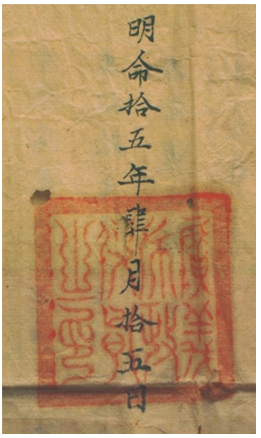 明命拾五年肆月拾五日